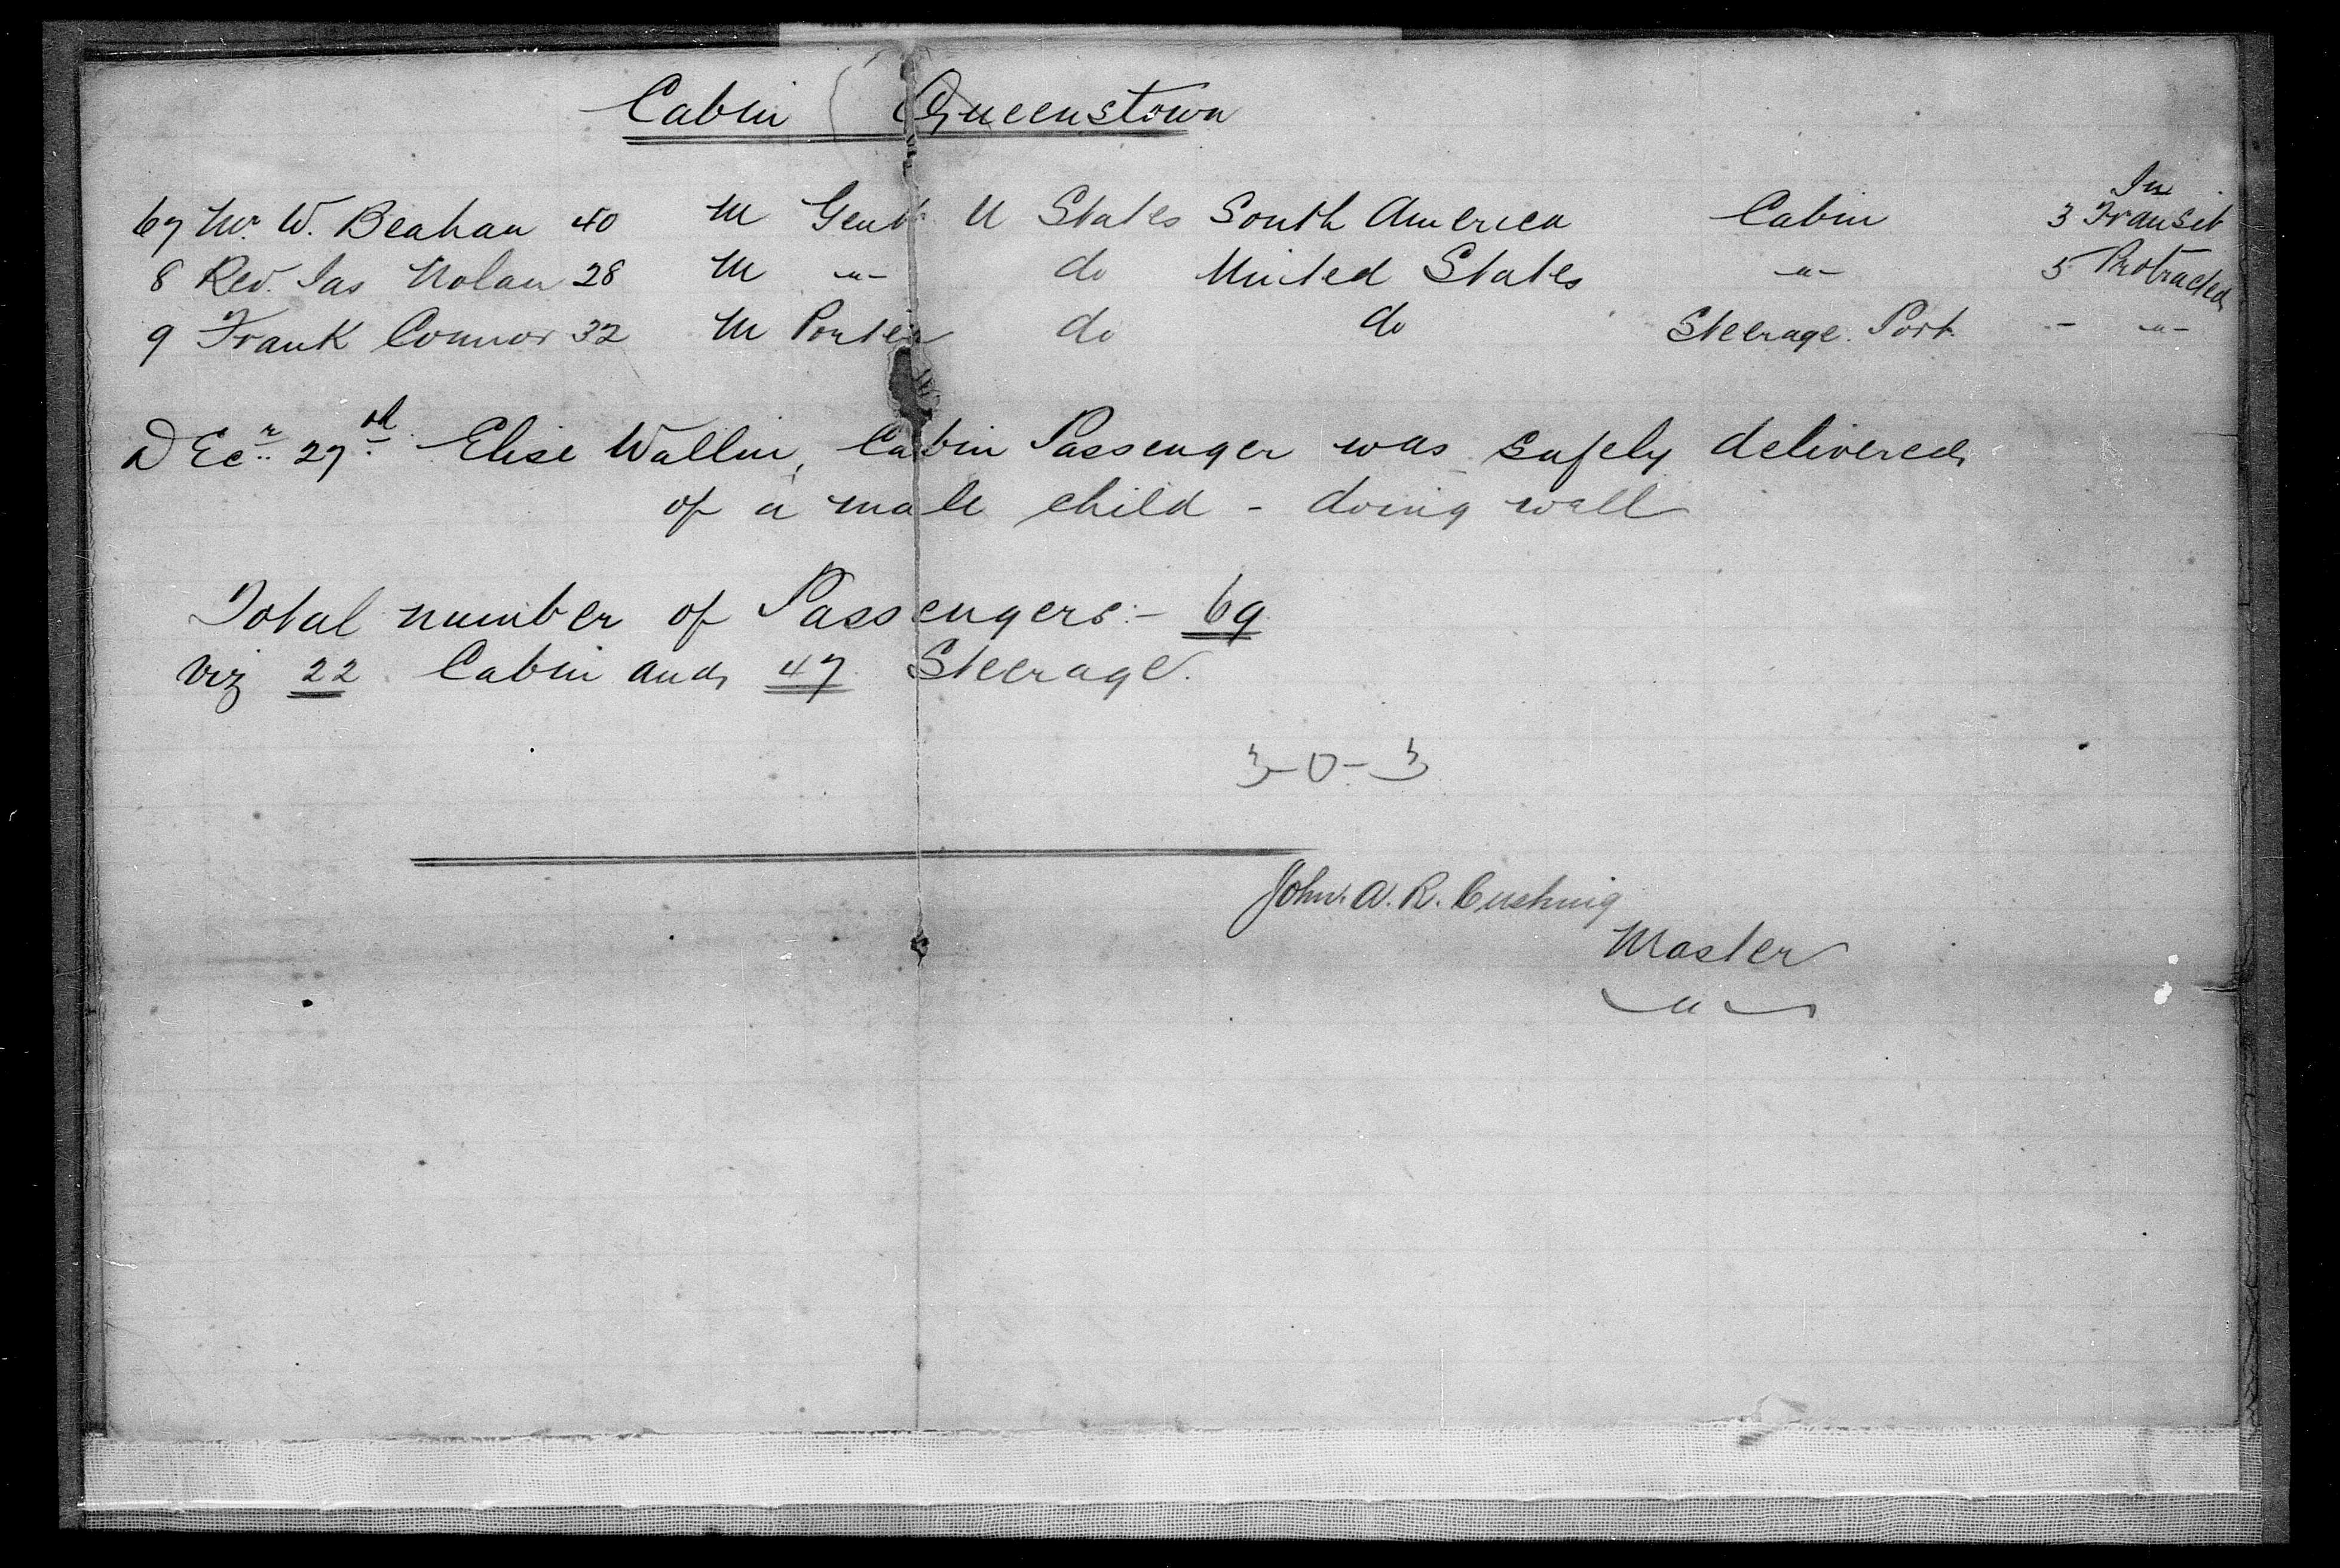 Cabin ( Queenstown
67 Mr. W. Beahan 40 M Gent U States South America Cabin 3 In Transit
8 Rev. Jas Nolan 28 M -"- do United States -"- 5 Protracted
9 Frank Connor 32 M Porter do do Steerage. Port. - -"-
Decr. 27th Elise Wallin, Cabin Passenger was safely delivered
of a male child - doing well
Total number of Passengers:- 69
viz 22 Cabin and 47 Steerage.
3-0-3
John. A. R. Cushing
Master